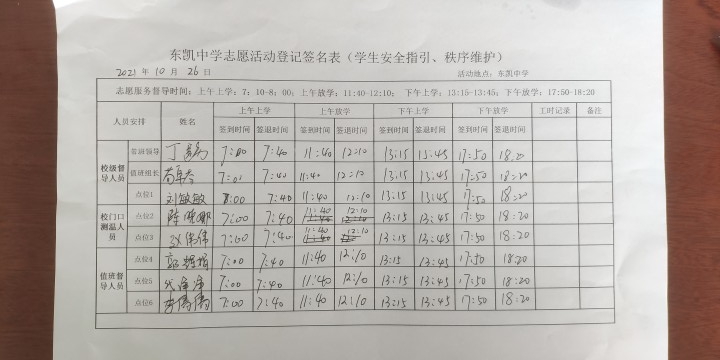 东凯中学志愿活动登记签名表（学生安全指引、秩序维护）
2021 年 10 月 26 日 活动地点：东凯中学
志愿服务督导时间：上午上学：7：10-8：00；上午放学：11:40-12:10；下午上学：13:15-13:45；下午放学：17:50-18:20
人员安排 姓名 上午上学 上午放学 下午上学 下午放学 工时记录 备注
签到时间 签退时间 签到时间 签退时间 签到时间 签退时间 签到时间 签退时间
校级督导人员
值班领导 丁 7:00 7:40 11:40 12:10 13:15 13:45 17:50 18:20
值班组长 7:01 7:40 11:40 12:10 13:15 13:45 17:50 18:20
点位1 刘敏敏 7:00 7:40 11:40 12:10 13:15 13:45 17:50 18:20
校门口测温人员
点位2 陈 娜 7:00 7:40 11:40 12:10 13:15 13:45 17:50 18:20
点位3 赵伟伟 7:00 7:40 11:40 12:10 13:15 13:45 17:50 18:20
值班督导人员
点位4 郭 7:00 7:40 11:40 12:10 13:15 13:45 17:50 18:20
点位5 7:00 7:40 11:40 12:10 13:15 13:45 17:50 18:20
点位6 李倩倩 7:00 7:40 11:40 12:10 13:15 13:45 17:50 18:20